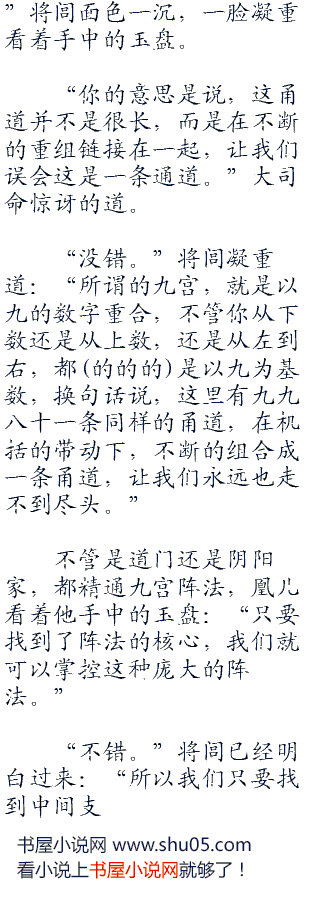 ”将闾面色一沉，一脸凝重
看着手中的玉盘。
“你的意思是说，这甬
道并不是很长，而是在不断
的重组链接在一起，让我们
误会这是一条通道。”大司
命惊讶的道。
“没错。”将闾凝重
道：“所谓的九宫，就是以
九的数字重合，不管你从下
数还是从上数，还是从左到
右，都(的的的)是以九为基
数，换句话说，这里有九九
八十一条同样的甬道，在机
括的带动下，不断的组合成
一条甬道，让我们永远也走
不到尽头。”
不管是道门还是阴阳
家，都精通九宫阵法，凰儿
看着他手中的玉盘：“只要
找到了阵法的核心，我们就
可以掌控这种庞大的阵
法。”
“不错。”将闾已经明
白过来：“所以我们只要找
到中间支
书屋小说网 www.shu05.com
看小说上书屋小说网就够了！